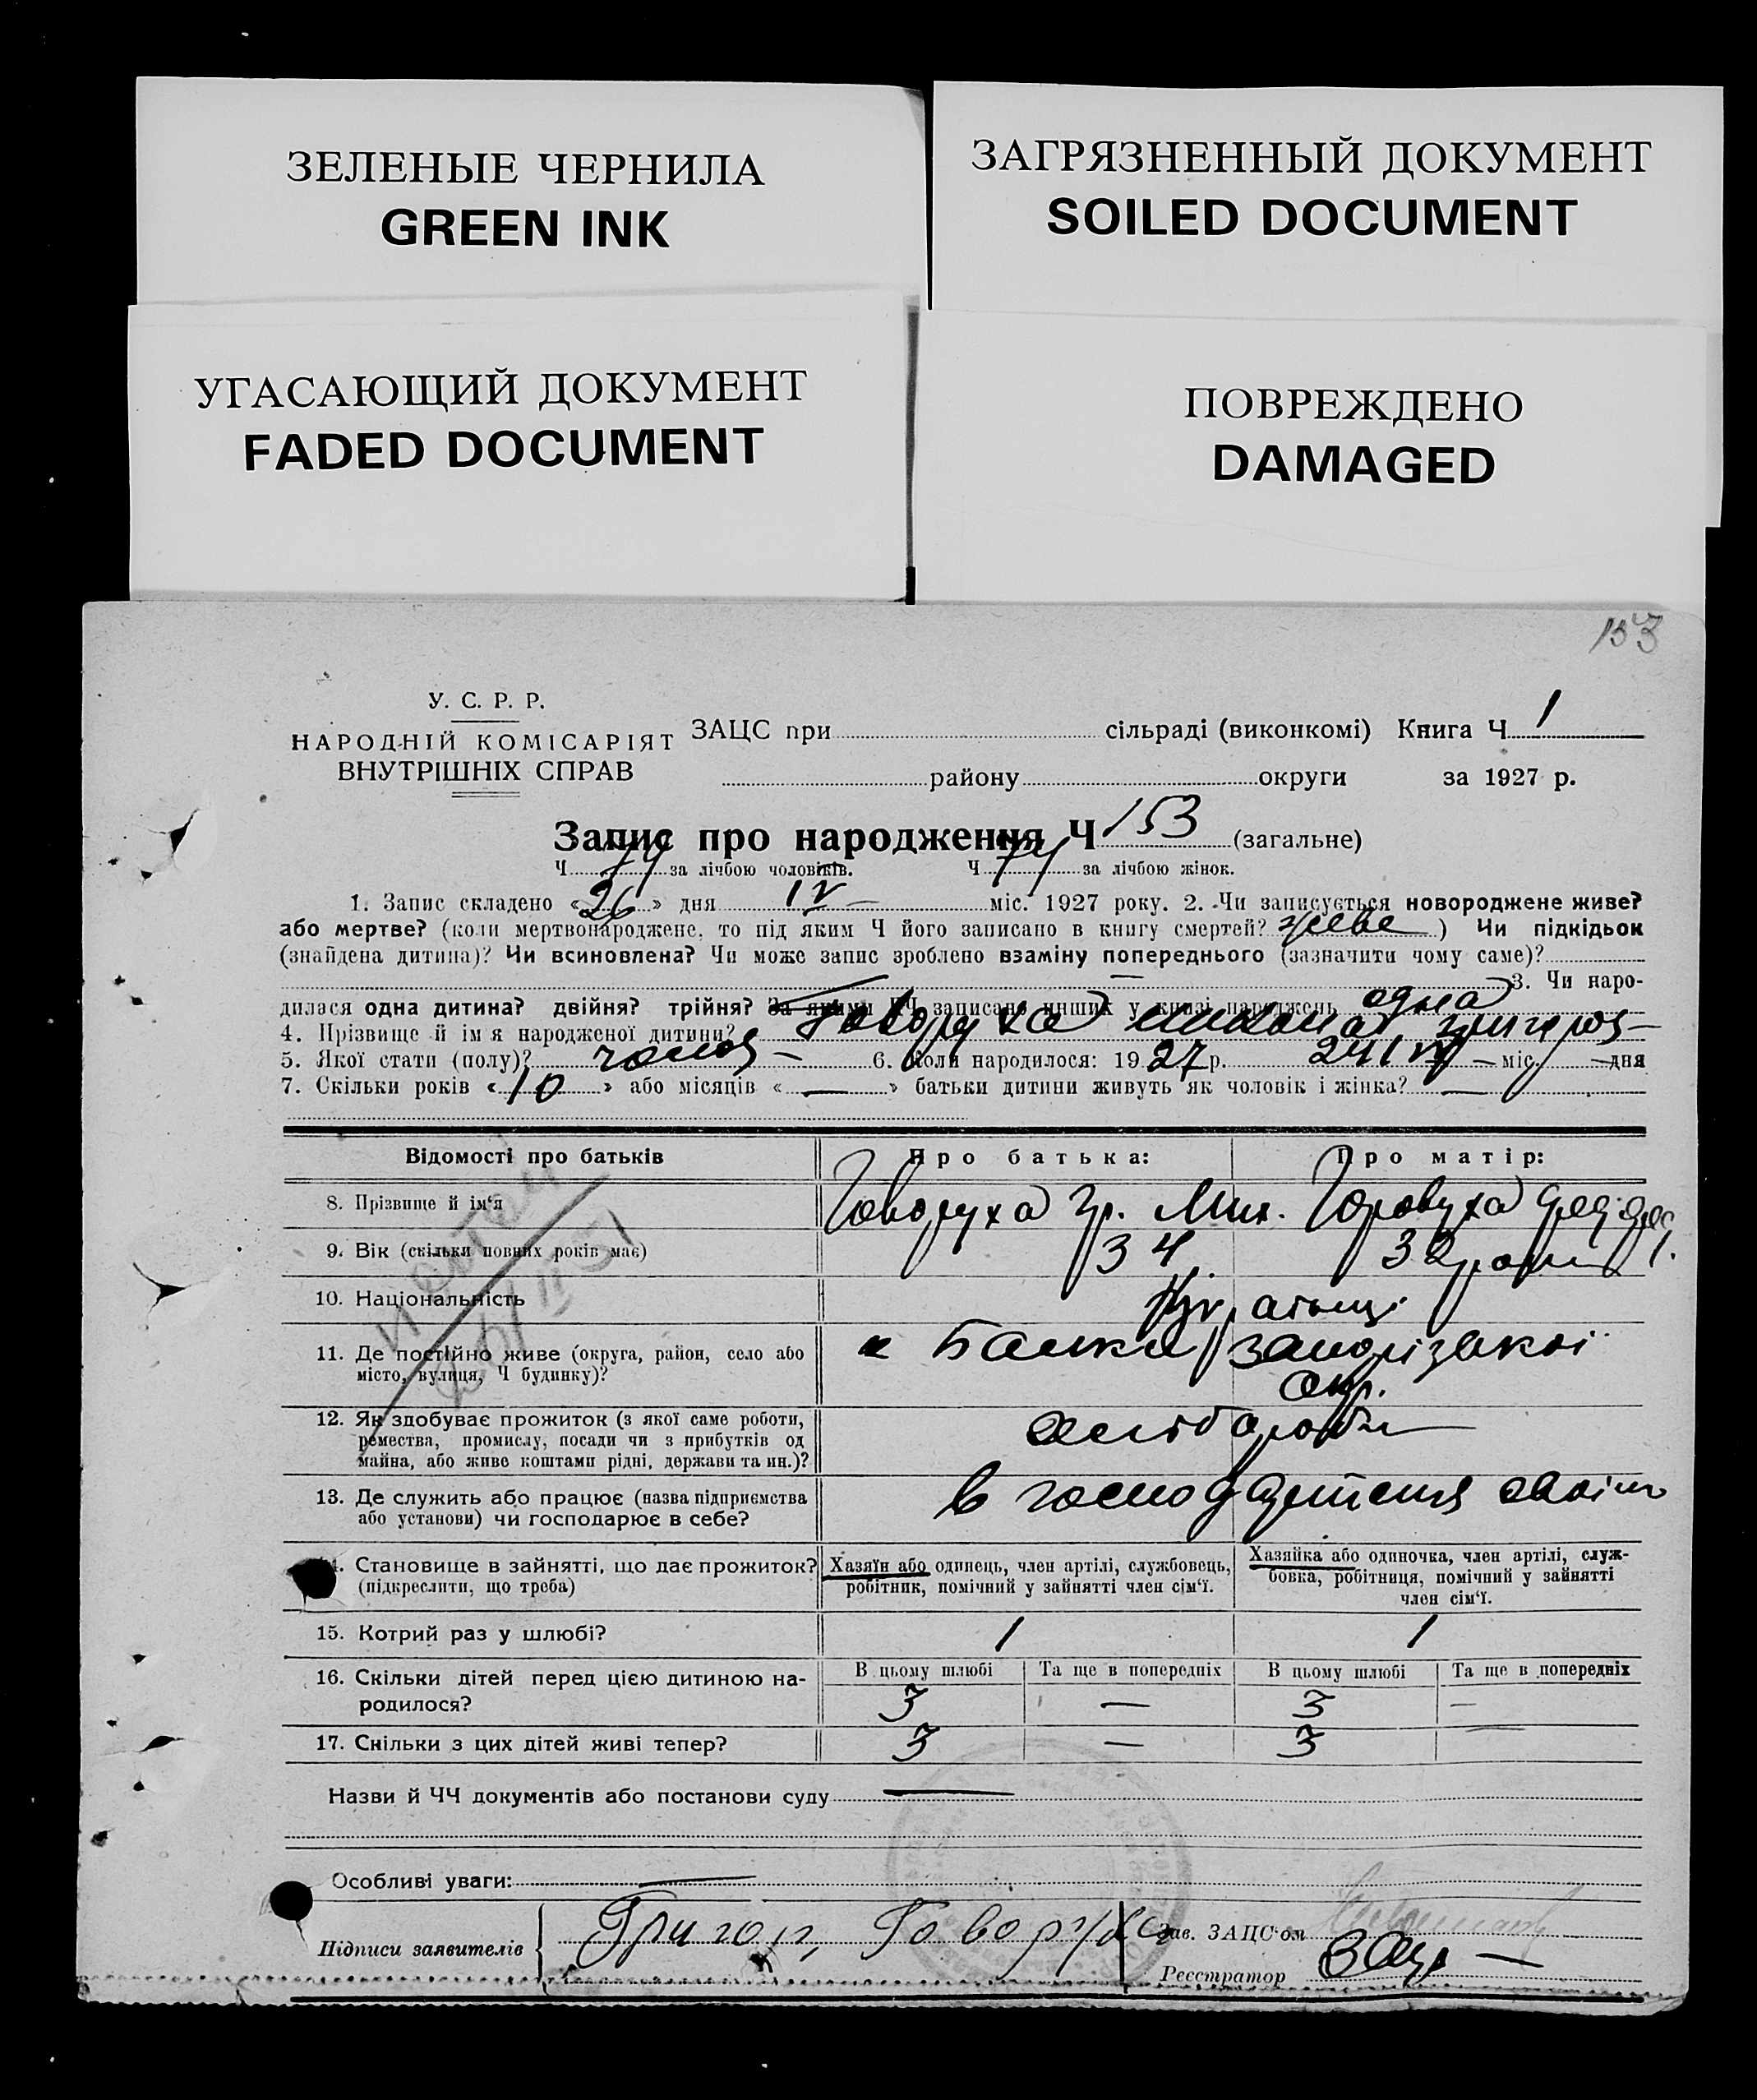 ЗЕЛЕНЫЕ ЧЕРНИЛА
GREEN INK
ЗАГРЯЗНЕННЫЙ ДОКУМЕНТ
SOILED DOCUMENT
УГАСАЮЩИЙ ДОКУМЕНТ
FADED DOCUMENT
ПОВРЕЖДЕНО
DAMAGED
153
У. С. Р. Р.
НАРОДНІЙ КОМІСАРІЯТ
ВНУТРІШНІХ СПРАВ
ЗАЦС при сільраді (виконкомі) Книга Ч 1
району округи за 1927 р.
Запис про народження Ч 153 (загальне)
Ч за лічбою чоловіків. Ч за лічбою жінок.
1. Запис складено «26» дня IV міс. 1927 року. 2. Чи записується новороджене живе?
або мертве? (коли мертвонароджене, то під яким Ч його записано в книгу смертей? живе) Чи підкідьок
(знайдена дитина)? Чи всиновлена? Чи може запис зроблено взаміну попереднього (зазначити чому саме)?
— 3. Чи наро-
дилася одна дитина? двійня? трійня? За якими ЧЧ записано инших у книзі народжень одна
4. Прізвище й ім'я народженої дитини? Говоруха
5. Якої стати (полу)? чолов — 6. Коли народилося: 1927 р. 24 IV — міс. — дня
7. Скільки років «10» або місяців «—» батьки дитини живуть як чоловік і жінка? —
Відомості про батьків Про батька: Про матір:
8. Прізвище й ім'я Говоруха Гр. Мих.
9. Вік (скільки повних років має) 34 32
10. Національність
11. Де постійно живе (округа, район, село або
місто, вулиця, Ч будинку)? Балки Запорізької
Окр.
12. Як здобуває прожиток (з якої саме роботи,
ремества, промислу, посади чи з прибутків од
майна, або живе коштами рідні, держави та ин.)? хлібороби
13. Де служить або працює (назва підприємства
або установи) чи господарює в себе? в своїм
Становище в зайнятті, що дає прожиток?
(підкреслити, що треба)
Хазяїн або одинець, член артілі, службовець,
робітник, помічний у зайнятті член сім'ї.
Хазяйка або одиночка, член артілі, служ-
бовка, робітниця, помічний у зайнятті
член сім'ї.
15. Котрий раз у шлюбі? 1 1
16. Скільки дітей перед цією дитиною на-
родилося?
В цьому шлюбі Та ще в попередніх В цьому шлюбі Та ще в попередніх
3 — 3 —
17. Скільки з цих дітей живі тепер? 3 — 3 —
Назви й ЧЧ документів або постанови суду —
Особливі уваги: —
Підписи заявителів Григор, Говоруха
Зав. ЗАЦС'ом
Реєстратор